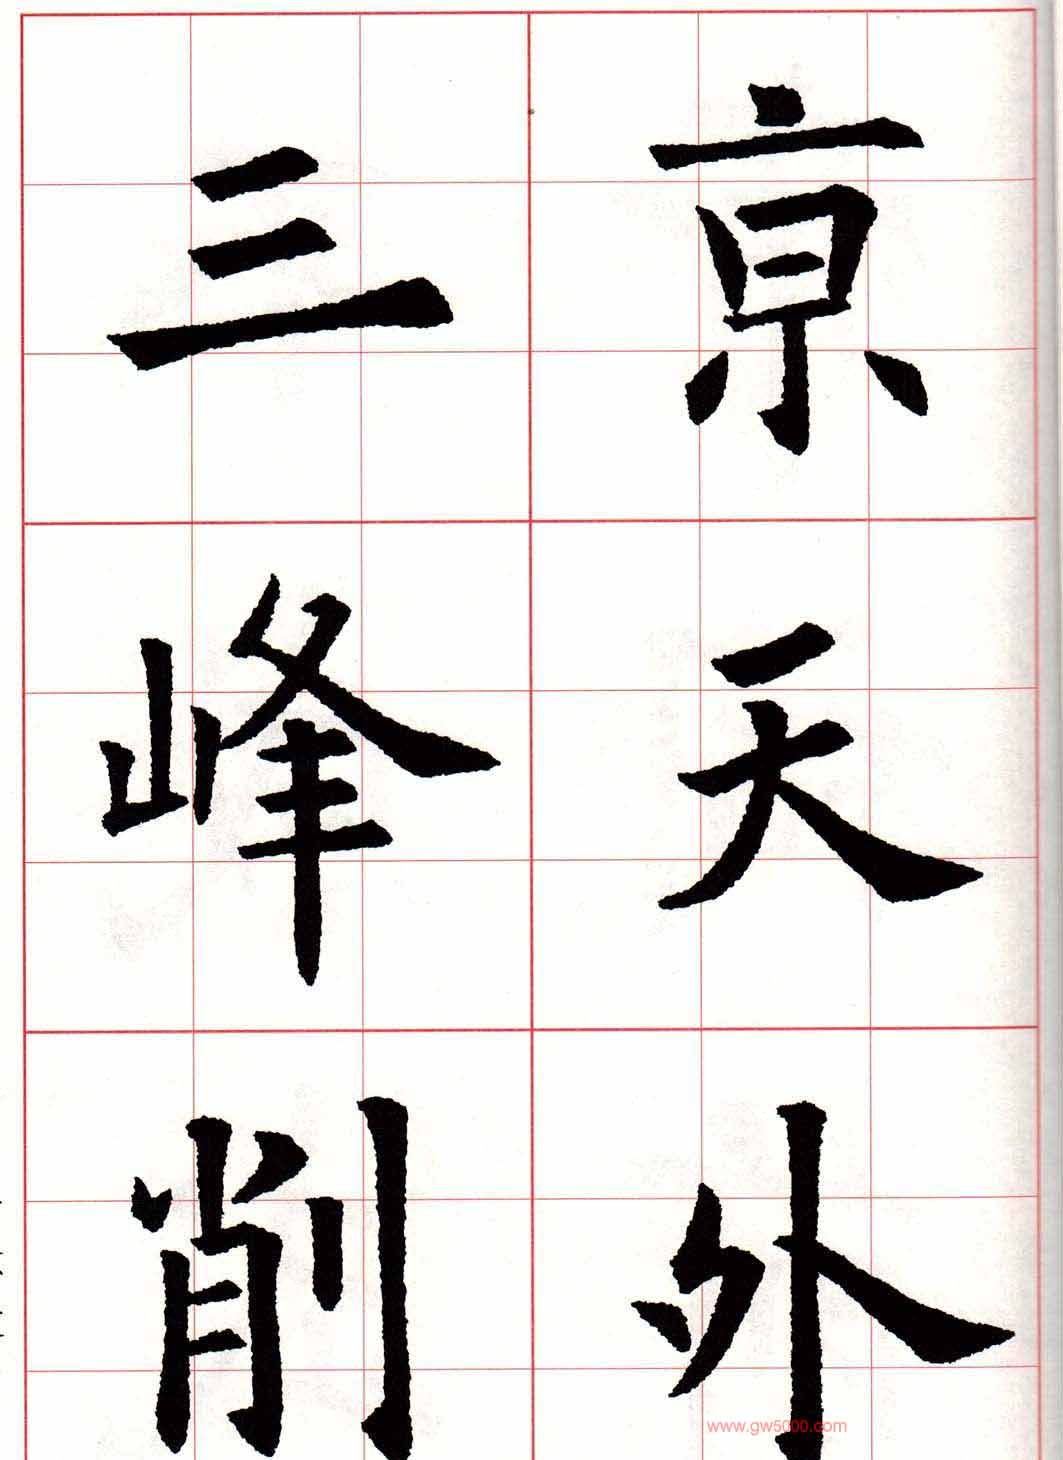 京天外
三峰削
www.gw5000.com